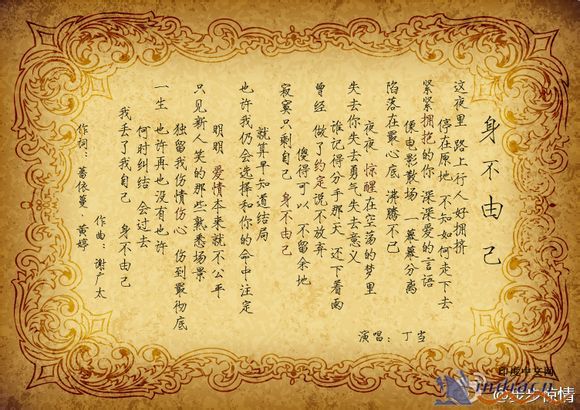 身不由己
这夜里 路上行人好拥挤
停在原地 不知如何走下去
紧紧拥抱的你 深深爱的言语
像电影散场 一幕幕分离
陷落在最心底 沸腾不已
夜夜 惊醒在空荡的梦里
失去你失去勇气失去意义
谁记得分手那天 还下着雨
曾经 做了约定说不放弃
傻得可以 不留余地
寂寞只剩自己 身不由己
就算早知道结局
也许我仍会选择和你的命中注定
明明 爱情本来就不公平
只见新人笑的那些熟悉场景
独留我伤情伤心 伤到最彻底
一生 也许再也没有也许
何时纠结 会过去
我丢了我自己 身不由己
作词：萧依蔓·黄婷
作曲：谢广太
演唱：丁当
印度中文网
indiacn